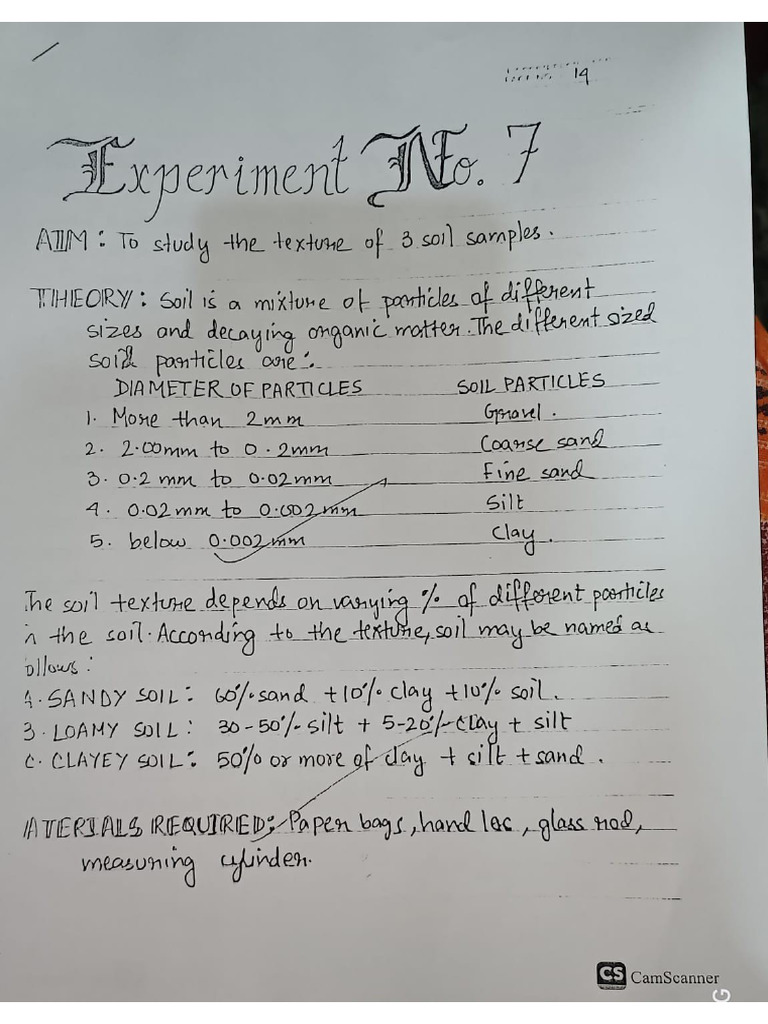 19
Experiment No. 7
AIM: To study the texture of 3 soil samples.
THEORY: Soil is a mixture of particles of different
sizes and decaying organic matter. The different sized
soil particles are:
DIAMETER OF PARTICLES SOIL PARTICLES
1. More than 2mm Gravel.
2. 2.00mm to 0.2mm Coarse sand
3. 0.2 mm to 0.02mm Fine sand
4. 0.02 mm to 0.002mm Silt
5. below 0.002mm Clay.
The soil texture depends on varying % of different particles
n the soil. According to the texture, soil may be named as
ollows:
A. SANDY SOIL: 60% sand + 10% clay + 10% soil.
B. LOAMY SOIL: 30-50% silt + 5-20% clay + silt
C. CLAYEY SOIL: 50% or more of clay + silt + sand.
ATERIALS REQUIRED: Paper bags, hand les, glass rod,
measuring cylinder.
CS CamScanner
G